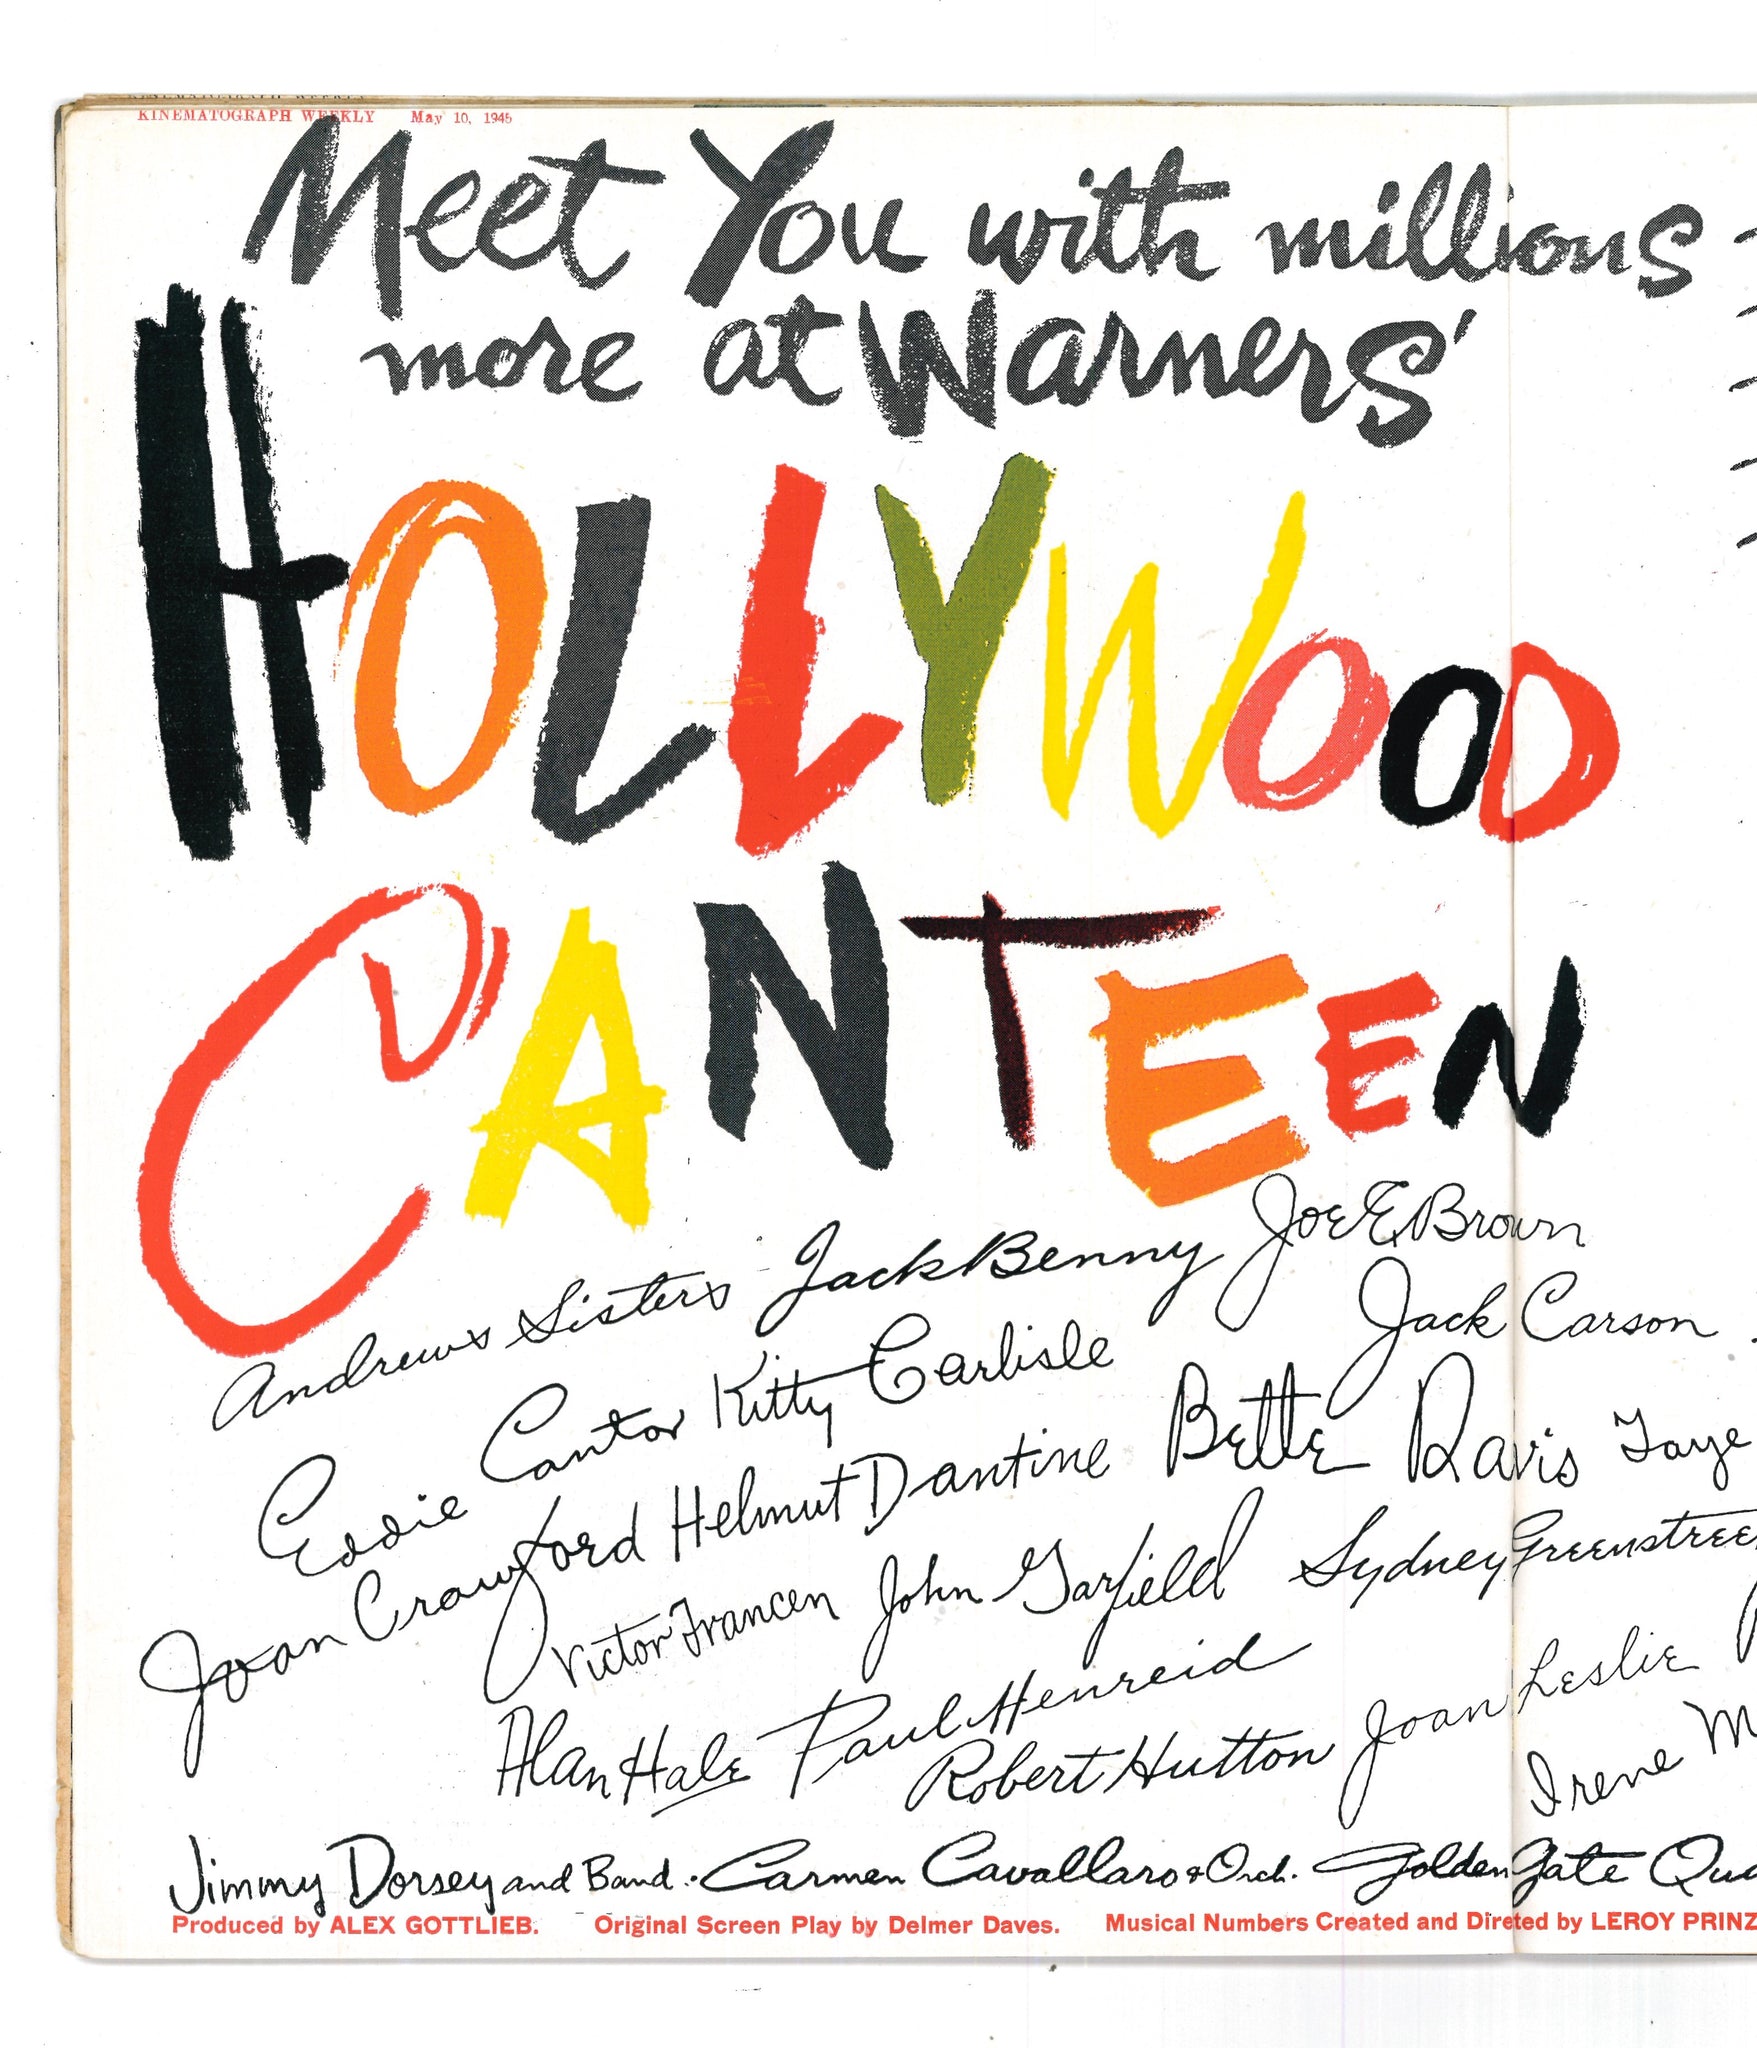 KINEMATOGRAPH WEEKLY May 10, 1945
Meet You with millions
more at Warners'
HOLLYWOOD
CANTEEN
Andrews Sisters Jack Benny Joe E. Brown
Eddie Cantor Kitty Carlisle Jack Carson
Joan Crawford Helmut Dantine Bette Davis Faye
Victor Francen John Garfield Sydney Greenstreet
Alan Hale Paul Henreid
Robert Hutton Joan Leslie
Irene M
Jimmy Dorsey and Band. Carmen Cavallaro & Orch. Golden Gate Qua
Produced by ALEX GOTTLIEB. Original Screen Play by Delmer Daves. Musical Numbers Created and Directed by LEROY PRINZ